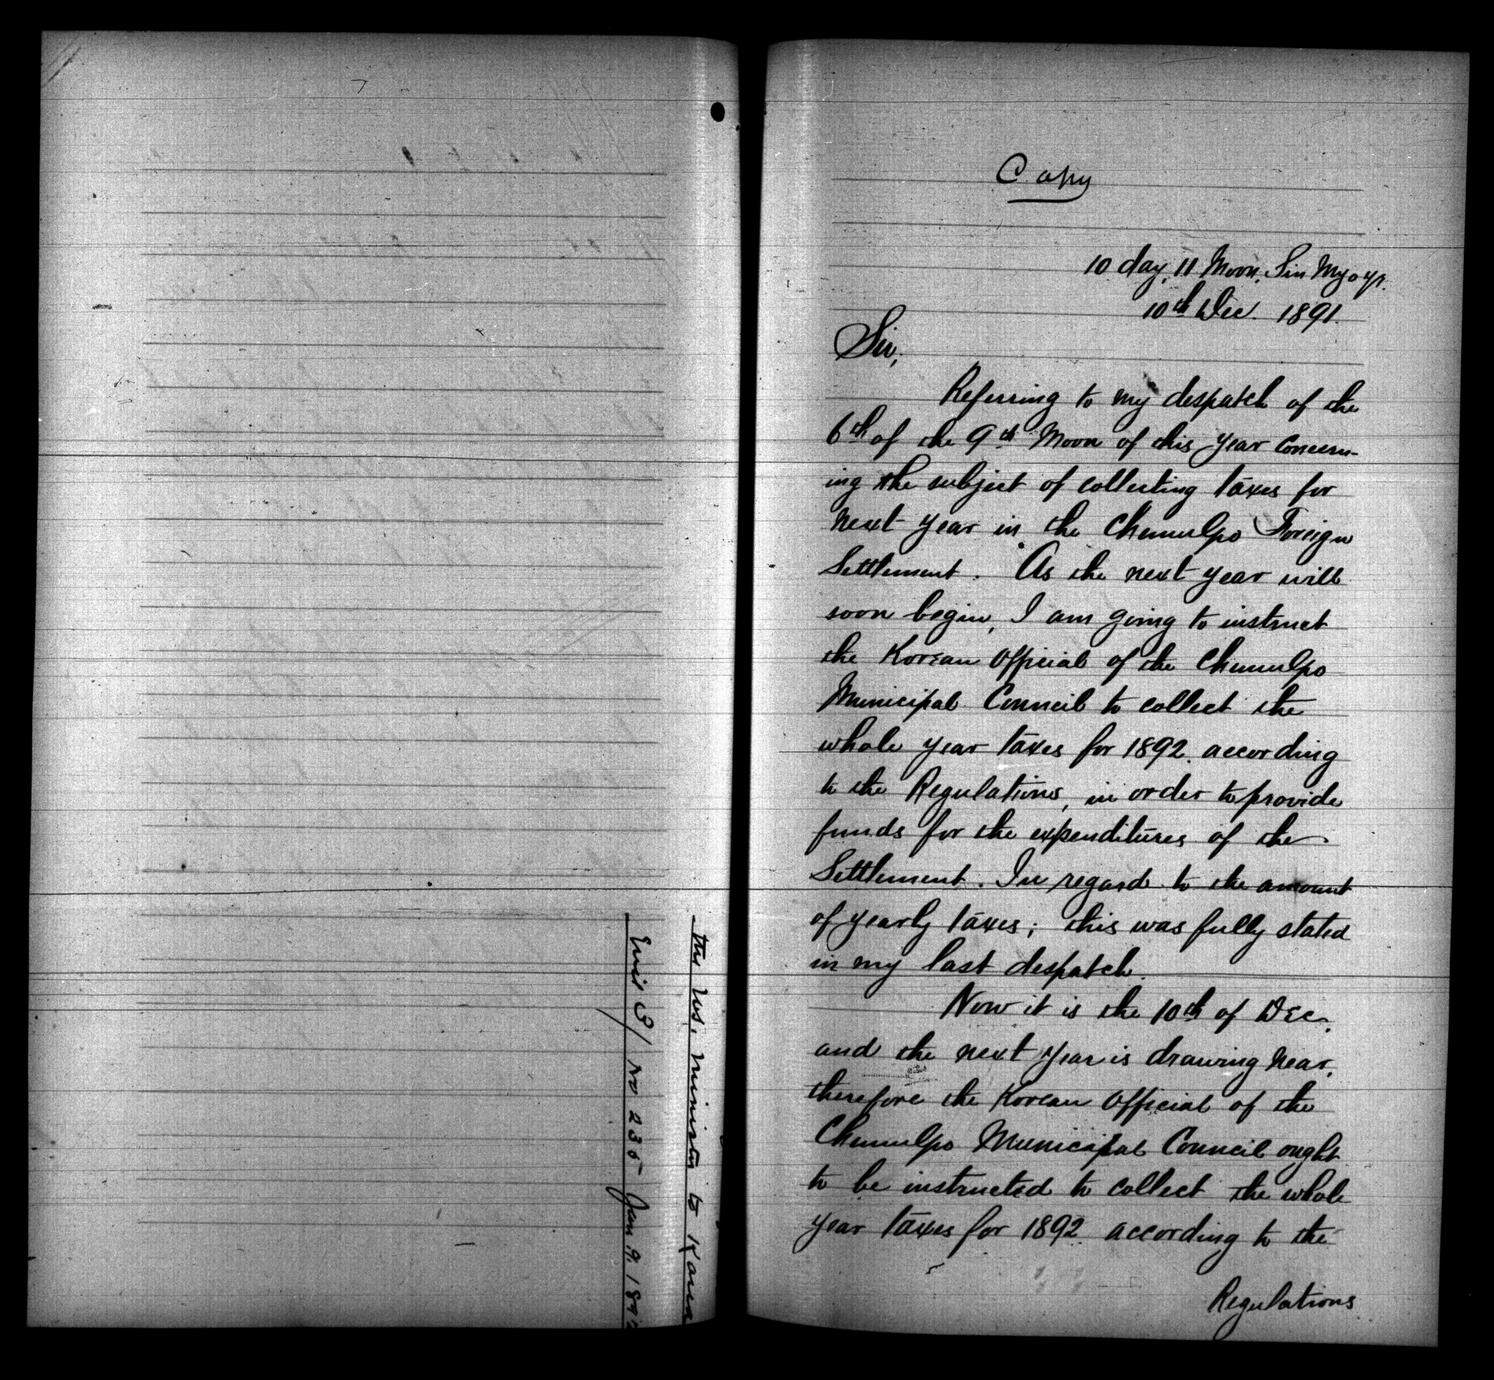 the U.S. Minister to Korea
Encl 3/ No 235 Jan 9. 189
Copy
10 day, 11 Moon, Sin Myo yr.
10th Dec. 1891.
Sir,
Referring to my despatch of the
6th of the 9th Moon of this year concern-
ing the subject of collecting taxes for
next year in the Chemulpo Foreign
Settlement. As the next year will
soon begin, I am going to instruct
the Korean Official of the Chemulpo
Municipal Council to collect the
whole year taxes for 1892. according
to the Regulations, in order to provide
funds for the expenditures of the
Settlement. In regard to the amount
of yearly taxes; this was fully stated
in my last despatch.
Now it is the 10th of Dec.
and the next year is drawing near,
therefore the Korean Official of the
Chemulpo Municipal Council ought
to be instructed to collect the whole
year taxes for 1892 according to the
Regulations